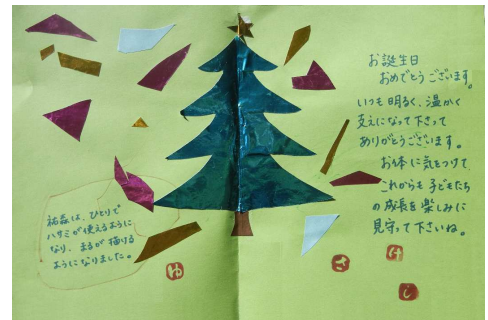 お誕生日
おめでとうございます。
いつも明るく、温かく
支えになって下さって
ありがとうございます。
お体に気をつけて
これからも子どもたち
の成長を楽しみに
見守って下さいね。
祐森は、ひとりで
ハサミが使えるように
なり、まるが描ける
ようになりました。
ゆ
さ
け
じ